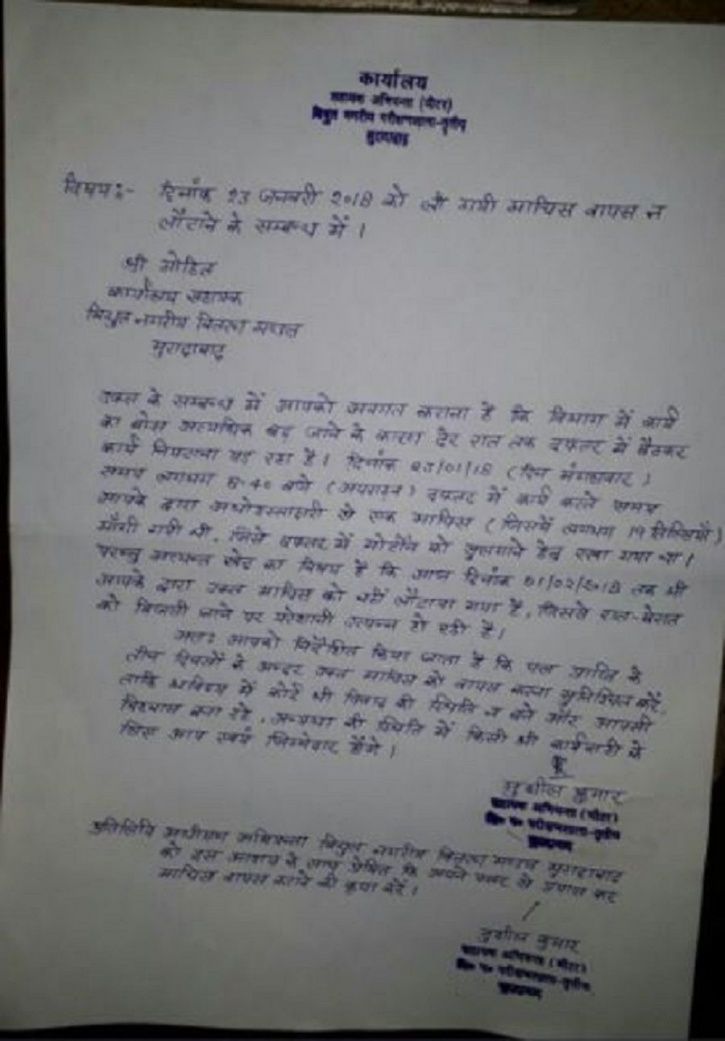 कार्यालय
सहायक अभियन्ता (मीटर)
विद्युत नगरीय परीक्षणशाला-तृतीय
मुरादाबाद
विषय:- दिनांक 23 जनवरी 2018 को ली गयी माचिस वापस न
लौटाने के सम्बन्ध में।
श्री मोहित
कार्यालय सहायक
विद्युत नगरीय वितरण मण्डल
मुरादाबाद
उक्त के सम्बन्ध में आपको अवगत कराना है कि विभाग में कार्य
का बोझ अत्यधिक बढ़ जाने के कारण देर रात तक दफ्तर में बैठकर
कार्य निपटाना पड़ रहा है। दिनांक 23/01/18 (दिन मंगलवार)
समय लगभग 8:40 बजे (अपराह्न) दफ्तर में कार्य करते समय
आपके द्वारा अधोहस्ताक्षरी से एक माचिस (जिसमें लगभग 19 तिल्लियाँ)
माँगी गयी थी, जिसे दफ्तर में मोर्टीन को सुलगाने हेतु रखा गया था।
परन्तु अत्यन्त खेद का विषय है कि आज दिनांक 01/02/2018 तक भी
आपके द्वारा उक्त माचिस को नहीं लौटाया गया है, जिससे रात-बेरात
को बिजली जाने पर परेशानी उत्पन्न हो रही है।
अतः आपको निर्देशित किया जाता है कि पत्र प्राप्ति के
तीन दिवसों के अन्दर उक्त माचिस को वापस करना सुनिश्चित करें,
ताकि भविष्य में कोई भी विवाद की स्थिति न बने और आपसी
विश्वास बना रहे, अन्यथा की स्थिति में किसी भी कार्यवाही के
लिए आप स्वयं जिम्मेदार होंगे।
सुशील कुमार
सहायक अभियन्ता (मीटर)
वि० न० परीक्षणशाला-तृतीय
मुरादाबाद
प्रतिलिपि अधीक्षण अभियन्ता विद्युत नगरीय वितरण मण्डल मुरादाबाद
को इस आशय के साथ प्रेषित कि अपने स्तर से प्रयास कर
माचिस वापस कराने की कृपा करें।
सुशील कुमार
सहायक अभियन्ता (मीटर)
वि० न० परीक्षणशाला-तृतीय
मुरादाबाद